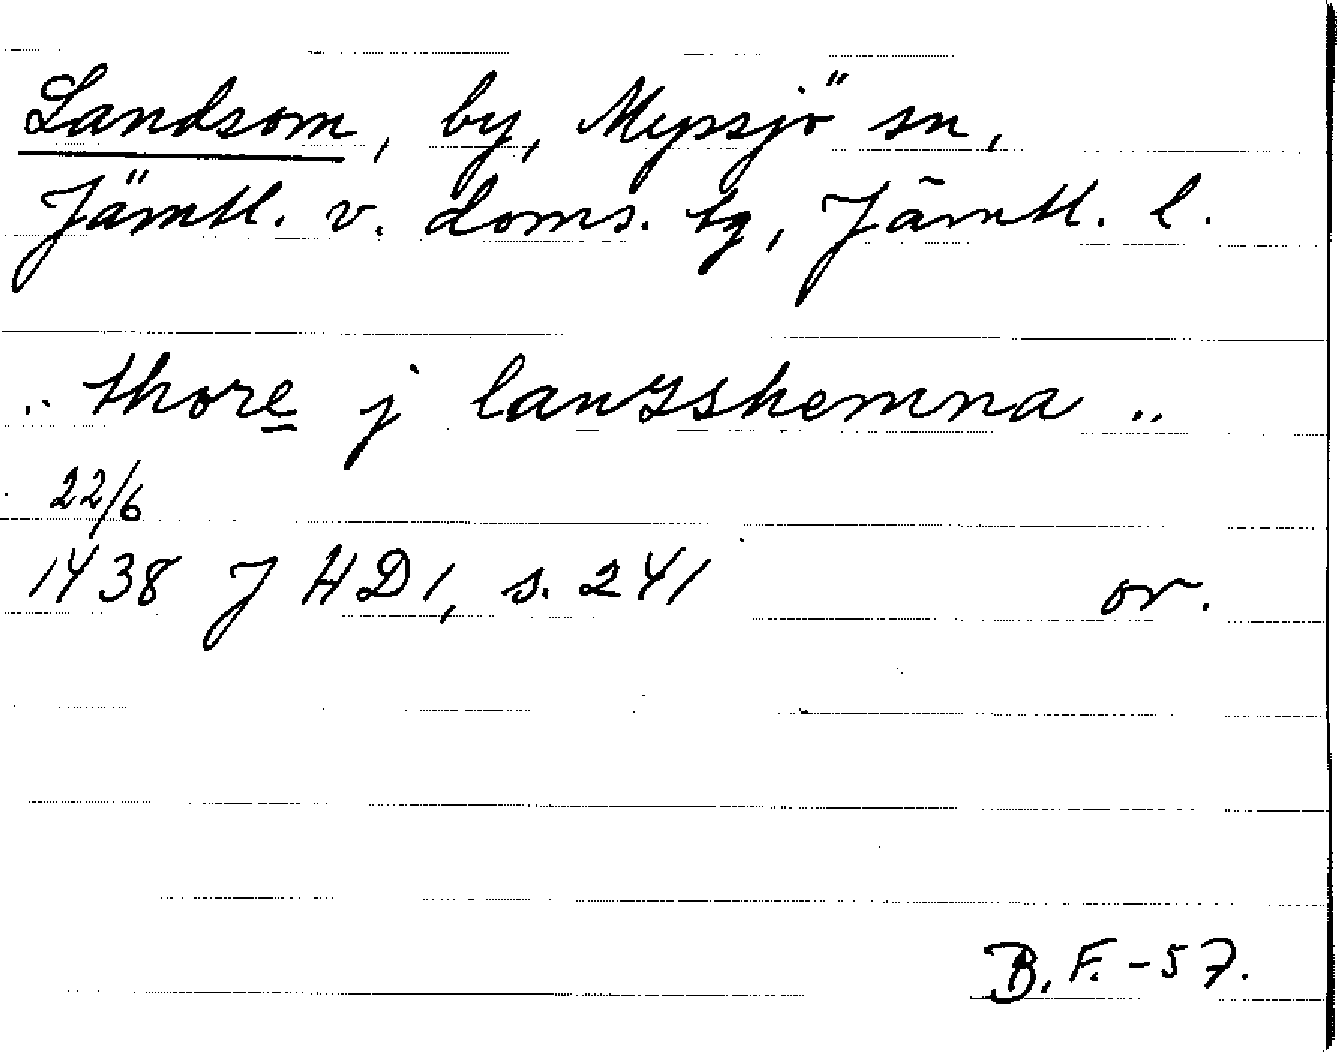 Landsom, by, Myssjö sn,
Jämtl. v. doms. tg, Jämtl. l.
.. thore j lanzshemna ..
22/6
1438 JHD1, s. 241 or.
B.F.-57.